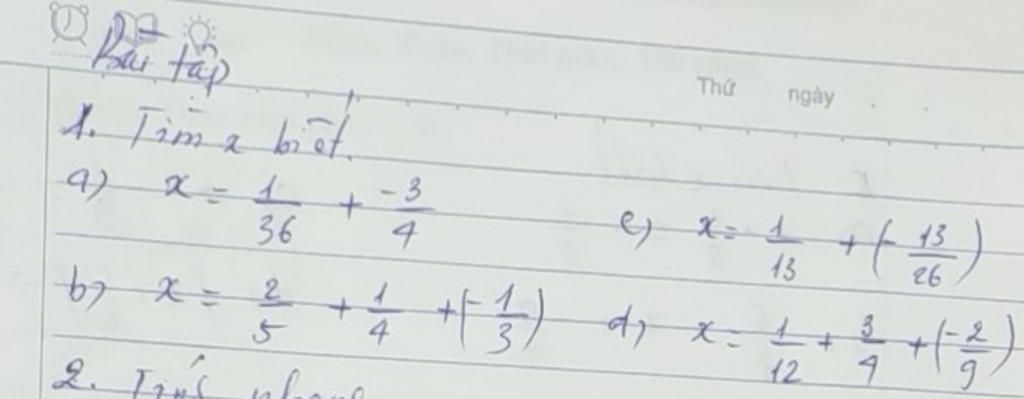 Bài tập
Thứ ngày
1. Tìm x biết.
a) x = 1/36 + -3/4
c) x = 1/13 + (- 13/26)
b) x = 2/5 + 1/4 + (- 1/3)
d) x = 1/12 + 3/4 + (- 2/9)
2. Tính nhanh